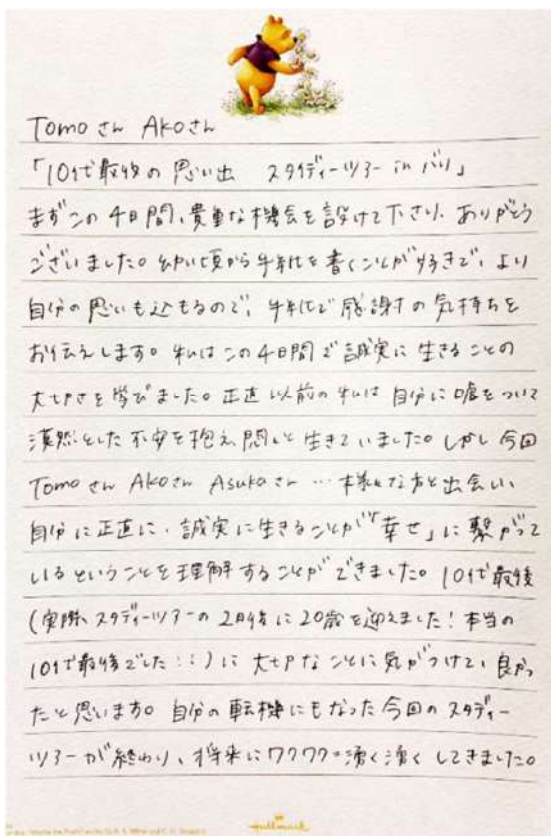 Tomoさん Akoさん
「10代最後の思い出 スタディーツアー in バリ」
まずこの4日間、貴重な機会を設けて下さり、ありがとう
ございました。幼い頃から手紙を書くことが好きで、より
自分の思いも込もるので、手紙で感謝の気持ちを
お伝えします。私はこの4日間で誠実に生きることの
大切さを学びました。正直以前の私は自分に嘘をついて
漠然とした不安を抱え、悶々と生きていました。しかし今回
Tomoさん Akoさん Asukaさん…様々な方と出会い、
自分に正直に、誠実に生きることが「幸せ」に繋がって
いるということを理解することができました。10代最後
(実際、スタディーツアーの2日後に20歳を迎えました!本当の
10代最後でした::)に大切なことに気がつけて、良かっ
たと思います。自分の転機にもなった今回のスタディー
ツアーが終わり、将来にワクワク。湧く湧くしてきました。
Hallmark